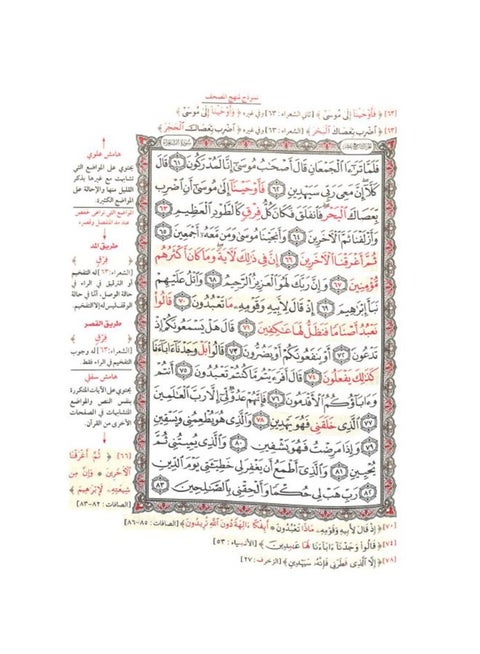 نموذج منهج المصحف
[٦٣] ﴿ فَأَوْحَيْنَا إِلَىٰ مُوسَىٰ ﴾ [ثاني الشعراء: ٦٣] وفي غيره ﴿ وَأَوْحَيْنَا إِلَىٰ مُوسَىٰ ﴾
[٦٣] ﴿ اضْرِب بِّعَصَاكَ الْبَحْرَ ﴾ [الشعراء: ٦٣] وفي غيره ﴿ اضْرِب بِّعَصَاكَ الْحَجَرَ ﴾
سورة الشعراء
فَلَمَّا تَرَٰٓءَا ٱلْجَمْعَانِ قَالَ أَصْحَٰبُ مُوسَىٰٓ إِنَّا لَمُدْرَكُونَ ٦١ قَالَ
كَلَّآ إِنَّ مَعِىَ رَبِّى سَيَهْدِينِ ٦٢ فَأَوْحَيْنَآ إِلَىٰ مُوسَىٰٓ أَنِ ٱضْرِب
بِّعَصَاكَ ٱلْبَحْرَ فَٱنفَلَقَ فَكَانَ كُلُّ فِرْقٍ كَٱلطَّوْدِ ٱلْعَظِيمِ ٦٣
وَأَزْلَفْنَا ثَمَّ ٱلْءَاخَرِينَ ٦٤ وَأَنجَيْنَا مُوسَىٰ وَمَن مَّعَهُۥٓ أَجْمَعِينَ ٦٥
ثُمَّ أَغْرَقْنَا ٱلْءَاخَرِينَ ٦٦ إِنَّ فِى ذَٰلِكَ لَءَايَةً وَمَا كَانَ أَكْثَرُهُم
مُّؤْمِنِينَ ٦٧ وَإِنَّ رَبَّكَ لَهُوَ ٱلْعَزِيزُ ٱلرَّحِيمُ ٦٨ وَٱتْلُ عَلَيْهِمْ
نَبَأَ إِبْرَٰهِيمَ ٦٩ إِذْ قَالَ لِأَبِيهِ وَقَوْمِهِۦ مَا تَعْبُدُونَ ٧٠ قَالُوا۟
نَعْبُدُ أَصْنَامًا فَنَظَلُّ لَهَا عَٰكِفِينَ ٧١ قَالَ هَلْ يَسْمَعُونَكُمْ إِذْ
تَدْعُونَ ٧٢ أَوْ يَنفَعُونَكُمْ أَوْ يَضُرُّونَ ٧٣ قَالُوا۟ بَلْ وَجَدْنَآ ءَابَآءَنَا
كَذَٰلِكَ يَفْعَلُونَ ٧٤ قَالَ أَفَرَءَيْتُم مَّا كُنتُمْ تَعْبُدُونَ ٧٥ أَنتُمْ
وَءَابَآؤُكُمُ ٱلْأَقْدَمُونَ ٧٦ فَإِنَّهُمْ عَدُوٌّ لِّىٓ إِلَّا رَبَّ ٱلْعَٰلَمِينَ
٧٧ ٱلَّذِى خَلَقَنِى فَهُوَ يَهْدِينِ ٧٨ وَٱلَّذِى هُوَ يُطْعِمُنِى وَيَسْقِينِ
٧٩ وَإِذَا مَرِضْتُ فَهُوَ يَشْفِينِ ٨٠ وَٱلَّذِى يُمِيتُنِى ثُمَّ
يُحْيِينِ ٨١ وَٱلَّذِىٓ أَطْمَعُ أَن يَغْفِرَ لِى خَطِيٓـَٔتِى يَوْمَ ٱلدِّينِ
٨٢ رَبِّ هَبْ لِى حُكْمًا وَأَلْحِقْنِى بِٱلصَّٰلِحِينَ ٨٣
هامش علوي
يحتوي على المواضع التي
تشابهت مع غيرها بذكر
القليل منها والإحالة على
المواضع الكثيرة.
طريق المد
﴿ فِرْقٍ ﴾
[الشعراء: ٦٣] له التفخيم
أو الترقيق في الراء في
حالة الوصل، أمّا في حالة
الوقف ليس له إلا التفخيم.
طريق القصر
﴿ فِرْقٍ ﴾
[الشعراء: ٦٣] له وجوب
التفخيم في الراء فقط.
هامش سفلي
يحتوي على الآيات المتكررة
بنفس النص والمواضع
المتشابهات في الصفحات
الأخرى من القرآن.
[٦٦] ﴿ ثُمَّ أَغْرَقْنَا
ٱلْآخَرِينَ * وَإِنَّ مِن
شِيعَتِهِۦ لَإِبْرَٰهِيمَ ﴾
[الصافات: ٨٢-٨٣]
[٧٠] ﴿ إِذْ قَالَ لِأَبِيهِ وَقَوْمِهِۦ مَاذَا تَعْبُدُونَ * أَئِفْكًا ءَالِهَةً دُونَ ٱللَّهِ تُرِيدُونَ ﴾ [الصافات: ٨٥-٨٦]
[٧٤] ﴿ قَالُوا۟ وَجَدْنَآ ءَابَآءَنَا لَهَا عَٰبِدِينَ ﴾ [الأنبياء: ٥٣]
[٧٨] ﴿ إِلَّا ٱلَّذِى فَطَرَنِى فَإِنَّهُۥ سَيَهْدِينِ ﴾ [الزخرف: ٢٧]